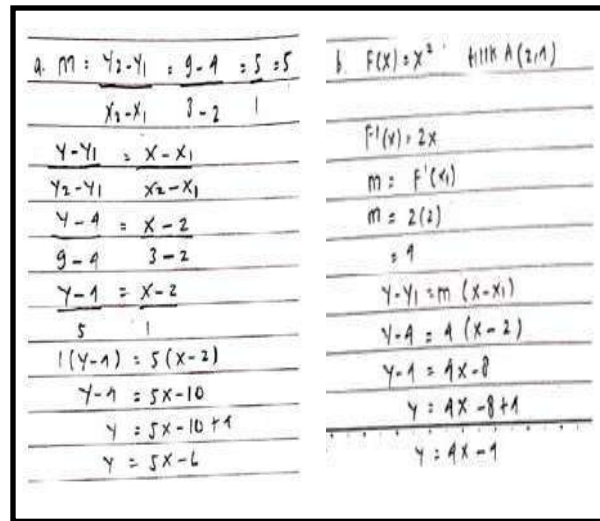 a. m = y₂-y₁ = 9-4 = 5 = 5
x₂-x₁ 3-2 1
y-y₁ = x-x₁
y₂-y₁ x₂-x₁
y-4 = x-2
9-4 3-2
y-4 = x-2
5 1
1(y-4) = 5(x-2)
y-4 = 5x-10
y = 5x-10+4
y = 5x-6
b. F(x) = x² titik A(2,4)
F'(x) = 2x
m = F'(x₁)
m = 2(2)
= 4
y-y₁ = m (x-x₁)
y-4 = 4 (x-2)
y-4 = 4x-8
y = 4x-8+4
y = 4x-4